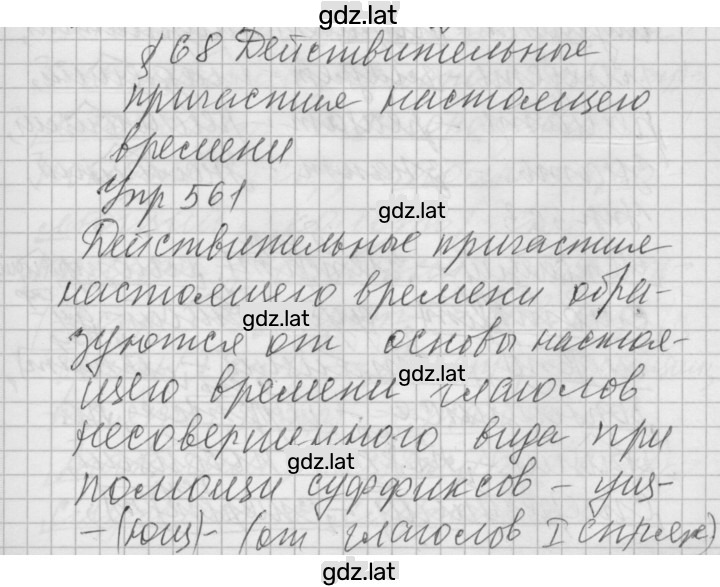 gdz.lat
§ 68 Действительные
причастия настоящего
времени
Упр 561
gdz.lat
Действительные причастия
настоящего времени обра-
gdz.lat
зуются от основы настоя-
gdz.lat
щего времени глаголов
несовершенного вида при
gdz.lat
помощи суффиксов - ущ-
-(ющ)- (от глаголов I спряж)
gdz.lat